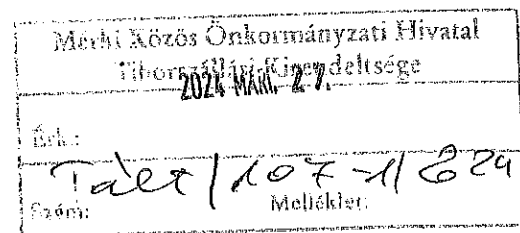 Mérki Közös Önkormányzati Hivatal
Tiborszállási Kirendeltsége
2024 MÁRC 27.
Érk.:
/107-1/2024
Szám: Melléklet: